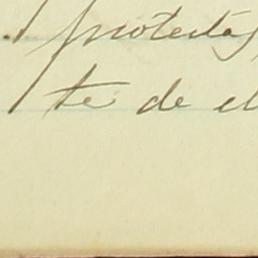 protestas
te de el